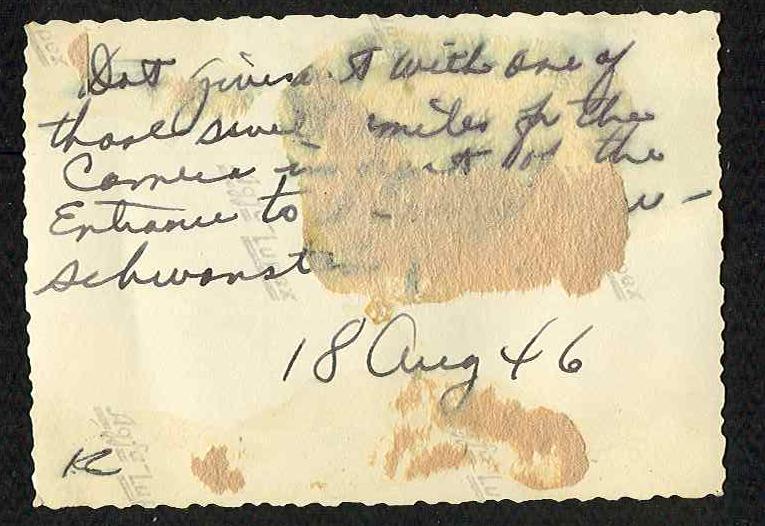 Dot gives it with one of
those sweet smiles for the
Camera in front of the
Entrance to
schwanst
18 Aug 46
K